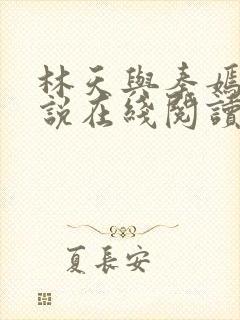 林天與秦嫣
說在綫閱讀
夏長安